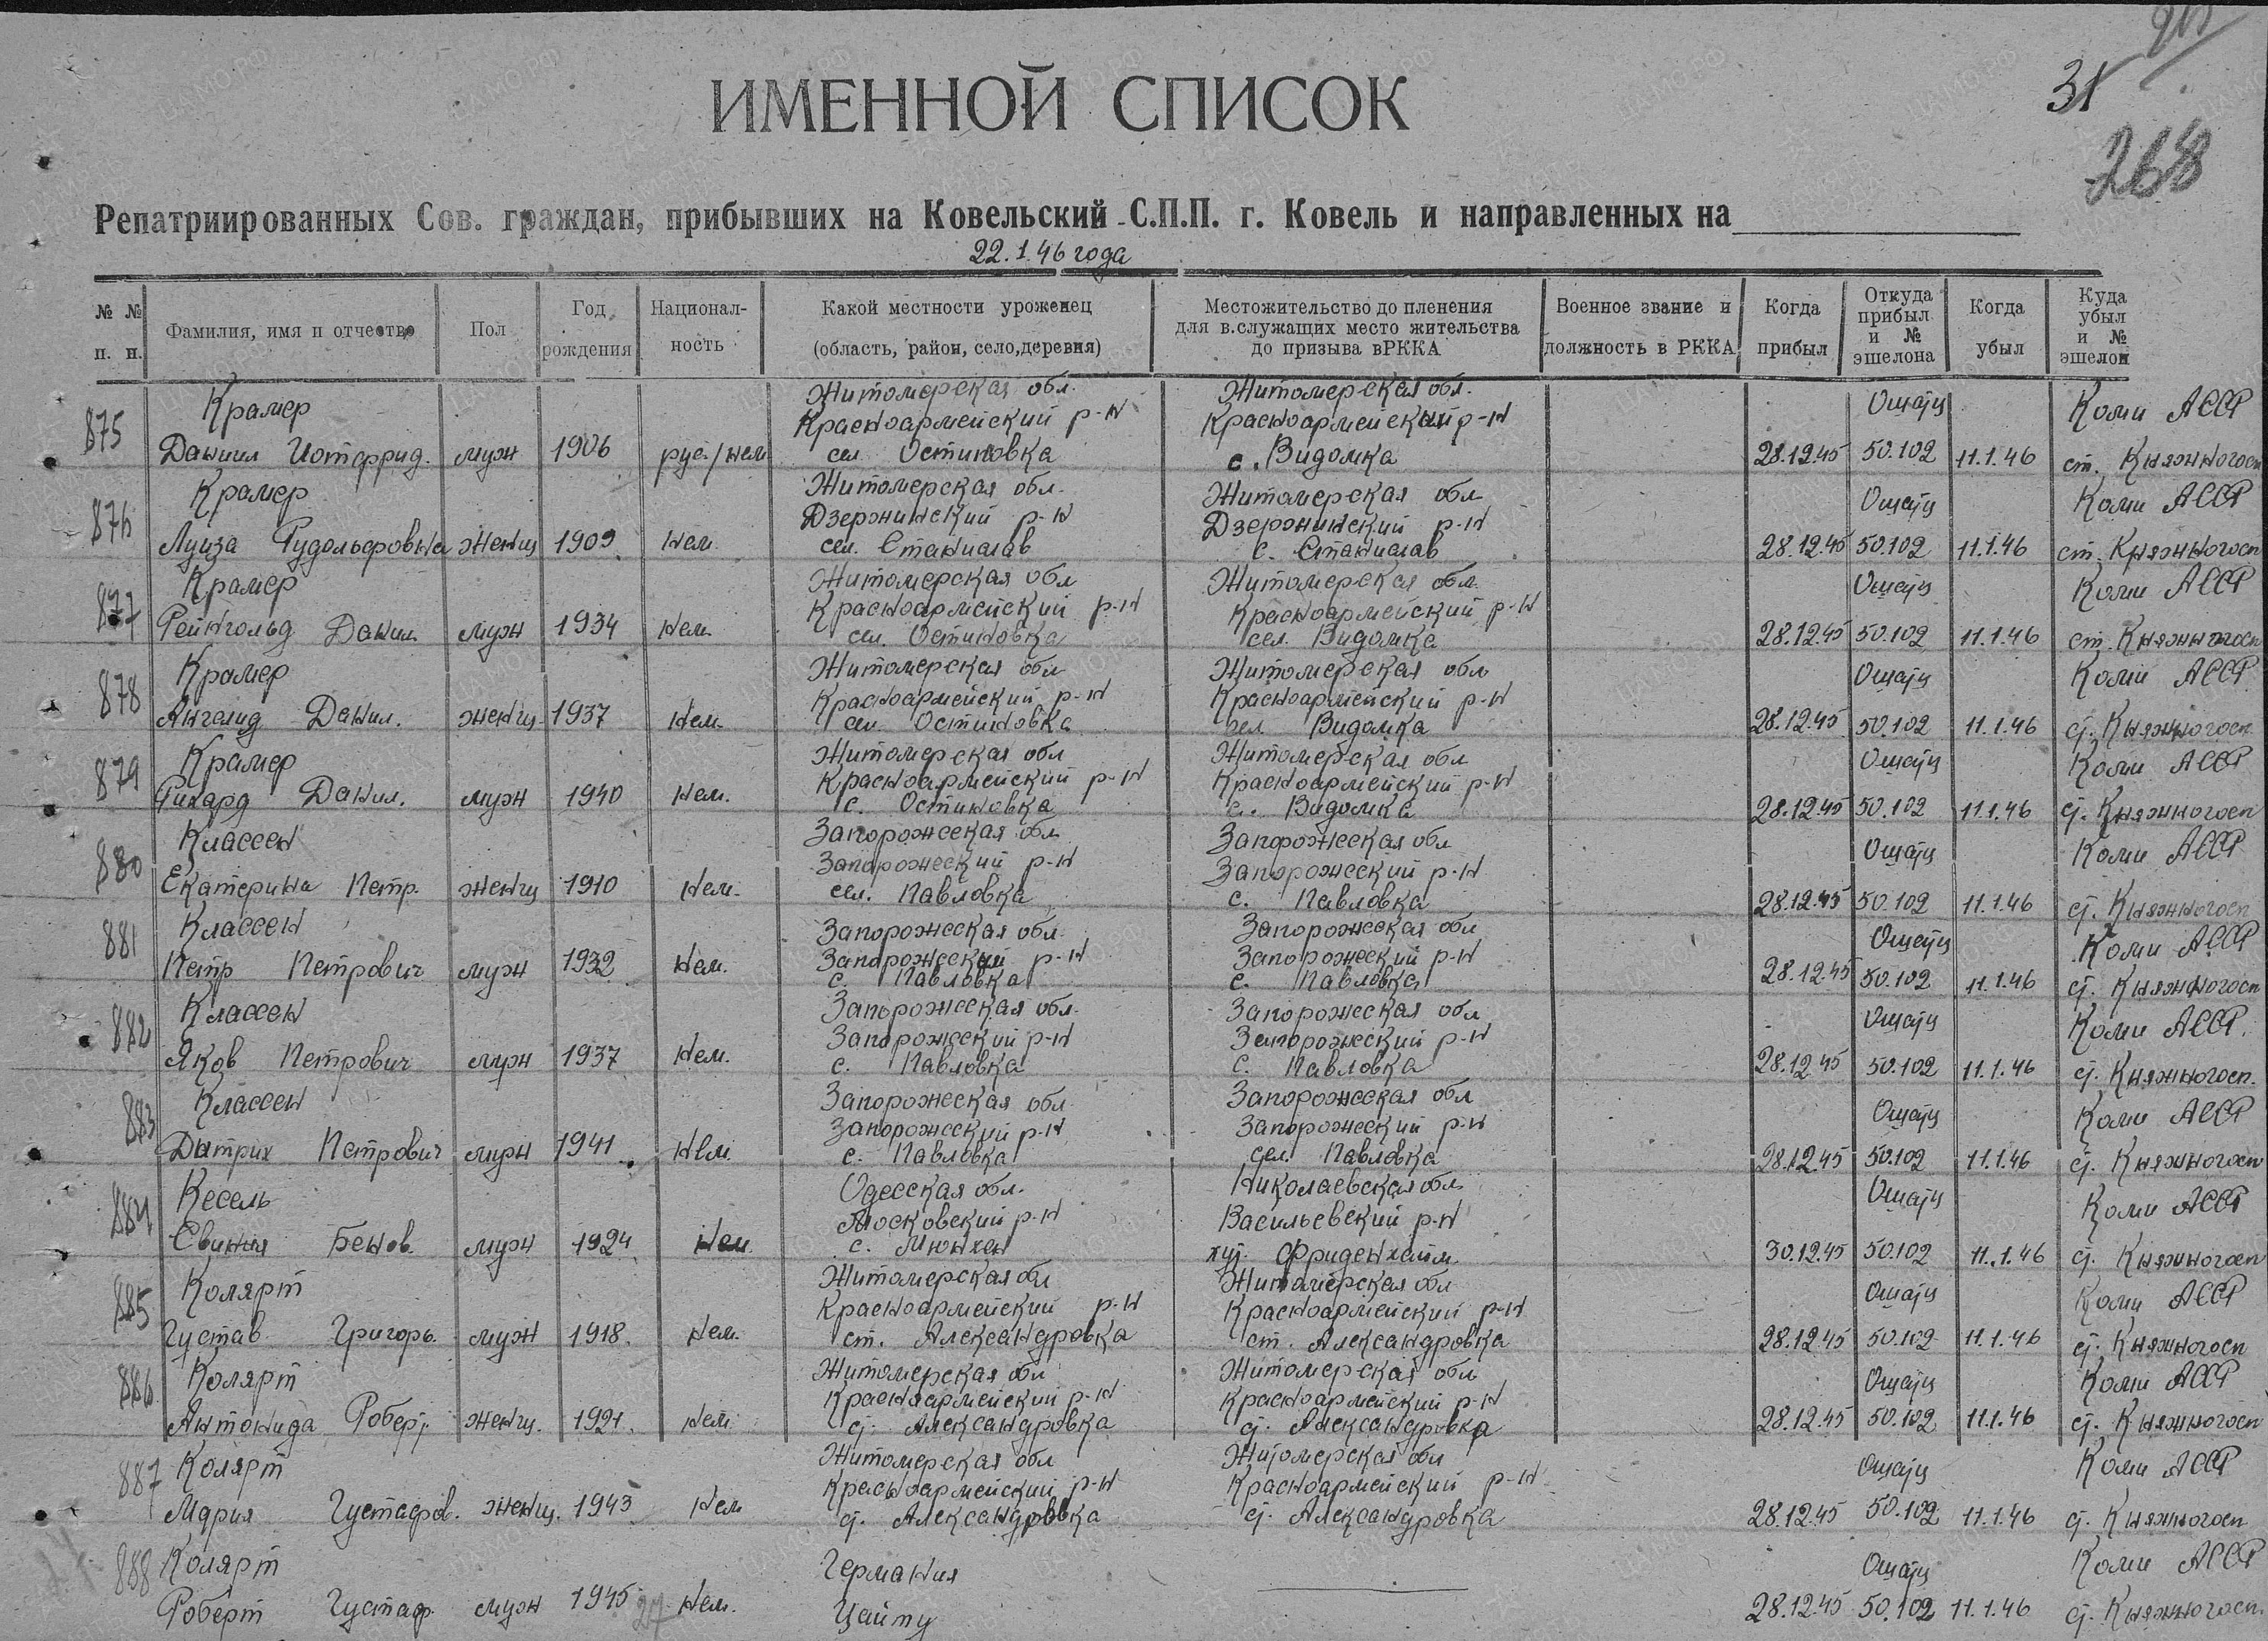 31
268
ИМЕННОЙ СПИСОК
Репатриированных Сов. граждан, прибывших на Ковельский С.П.П. г. Ковель и направленных на
22.1.46 года
№ № п. п. Фамилия, имя и отчество Пол Год рождения Националь-ность Какой местности уроженец (область, район, село, деревня) Местожительство до пленения для в.служащих место жительства до призыва в РККА Военное звание и должность в РККА Когда прибыл Откуда прибыл и № эшелона Когда убыл Куда убыл и № эшелон
Крамер Житомерская обл. Житомерская обл. Ошатц Коми АССР
875 Красноармейский р-н Красноармейский р-н
Даниил Готфрид. муж 1906 рус/нем сел. Остиновка с. Видомка 28.12.45 50.102 11.1.46 ст. Княжногосп
Крамер Житомерская обл. Житомерская обл Ошатц Коми АССР
876 Дзержинский р-н Дзержинский р-н
Луиза Рудольфовна женщ 1909 нем. сел. Станислав с. Станислав 28.12.45 50.102 11.1.46 ст. Княжногосп
Крамер Житомерская обл Житомерская обл. Ошатц Коми АССР
877 Красноармейский р-н Красноармейский р-н
Рейнгольд Данил. муж 1934 нем. сел. Остиновка сел. Видомка 28.12.45 50.102 11.1.46 ст. Княжногосп
Крамер Житомерская обл Житомерская обл Ошатц Коми АССР
878 Красноармейский р-н Красноармейский р-н
Ангелид Данил. женщ. 1937 нем. сел. Остиновка сел Видомка 28.12.45 50.102 11.1.46 ст. Княжногосп.
Крамер Житомерская обл Житомерская обл Ошатц Коми АССР
879 Красноармейский р-н Красноармейский р-н
Рихард Данил. муж 1940 нем. с. Остиновка с. Видомка 28.12.45 50.102 11.1.46 ст. Княжногосп
Классен Запорожсская обл. Запорожсская обл Ошатц Коми АССР
880 Запорожсский р-н Запорожсский р-н
Екатерина Петр. женщ 1910 нем. сел. Павловка с. Павловка 28.12.45 50.102 11.1.46 ст. Княжногосп
Классен Запорожсская обл. Запорожсская обл Ошатц Коми АССР
881 Запорожсский р-н Запорожсский р-н
Петр Петрович муж 1932 нем. с. Павловка с. Павловка 28.12.45 50.102 11.1.46 ст. Княжногосп
Классен Запорожсская обл. Запорожсская обл Ошатц Коми АССР.
882 Запорожсский р-н Запорожсский р-н
Яков Петрович муж 1937 нем. с. Павловка с. Павловка 28.12.45 50.102 11.1.46 ст. Княжногосп.
Классен Запорожсская обл. Запорожсская обл Ошатц Коми АССР
883 Запорожсский р-н Запорожсский р-н
Дитрих Петрович муж 1941 нем. с. Павловка сел. Павловка 28.12.45 50.102 11.1.46 ст. Княжногосп
Кесель Одесская обл. Николаевская обл Ошатц Коми АССР
884 Московский р-н Васильевский р-н
Бенов. муж 1924 нем. с. Мюнхен хут. Фриденхайм. 30.12.45 50.102 11.1.46 ст. Княжногосп
Колярт Житомерская обл Житомерская обл Ошатц Коми АССР
885 Красноармейский р-н Красноармейский р-н
Густав Григорь. муж 1918. нем. ст. Александровка ст. Александровка 28.12.45 50.102 11.1.46 ст. Княжногосп
Колярт Житомерская обл Житомерская обл Ошатц Коми АССР
886 Красноармейский р-н Красноармейский р-н
Антонида Роберт. женщ. 1921. нем. ст. Александровка ст. Александровка 28.12.45 50.102 11.1.46 ст. Княжногосп
Колярт Житомерская обл Житомерская обл Ошатц Коми АССР
887 Красноармейский р-н Красноармейский р-н
Мария Густафов. женщ. 1943 нем ст. Александровка ст. Александровка 28.12.45 50.102 11.1.46 ст. Княжногосп
888 Колярт Германия Ошатц Коми АССР
Роберт Густаф. муж 1945 27 нем. Цайту 28.12.45 50.102 11.1.46 ст. Княжногосп.